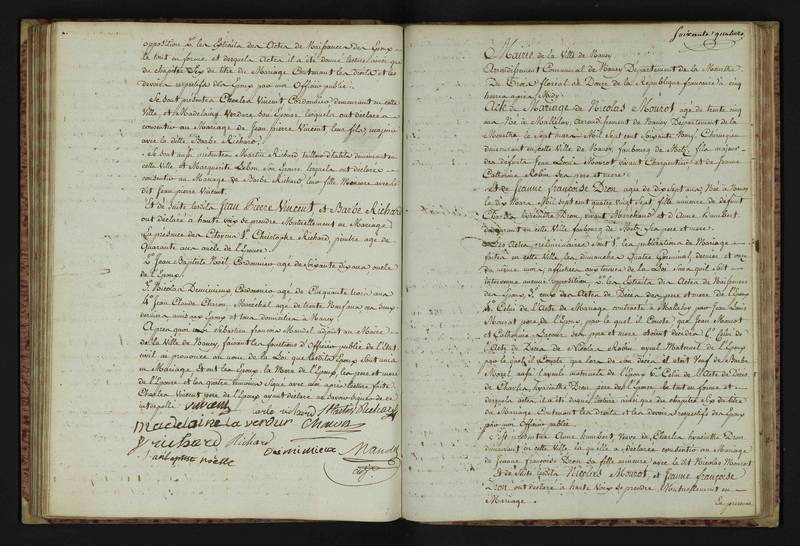 opposition 2° les Extraits des Actes de Naissances des Epoux
le tout en forme et desquels Actes il a été donné lecture ainsi que
du chapitre Six du titre du Mariage Contenant les droits et les
devoirs respectifs des Epoux par moi Officier public.
Se sont présentés Charles Vincent Cordonnier, demeurant en cette
Ville, et Madelaine Verdure son Epouse lesquels ont déclaré
consentir au Mariage de Jean pierre Vincent leur fils, majeur
avec la ditte Barbe Richard.
Se sont aussi présentés Martin Richard tailleur d'habits demeurant en
cette Ville et Marguerite Lebon son Epouse lesquels ont déclaré
consentir au Mariage de Barbe Richard leur fille Mineure avec le
dit Jean pierre Vincent.
Et de Suite lesdits Jean Pierre Vincent et Barbe Richard
ont déclaré à haute voix se prendre Mutuellement en Mariage
En présence des Citoyens 1° Christophe Richard, peintre agé de
Quarante ans oncle de l'Epouse.
2° Jean Baptiste Noël Cordonnier agé de Soixante dix ans oncle
de l'Epoux
3° Nicolas Demimieux Cordonnier agé de Cinquante trois ans
4° Jean Claude Charon, Maréchal agé de trente Neuf ans ces deux
derniers amis des Epoux et tous domiciliés à Nancy
Après quoi Moi Sébastien francois Mandel adjoint au Maire
de la Ville de Nancy, faisant les fonctions d'Officier public de l'Etat
civil ai prononcé au nom de la Loi que lesdits Epoux Sont unis
en Mariage. Et ont les Epoux la Mere de l'Epoux, les pere et mere
de l'Epouse et les quatre témoins Signé avec moi après lecture faite
Charles Vincent pere de l'Epoux ayant déclaré ne savoir signer de ce
interpellé
vincent
barbe richard Martin Richard
madelaine la verdur Charon
richard Richard Demimieux Mandel
jean baptiste noelle adj.
Soixante quatorze
Mairie de la Ville de Nancy
Arrondissement Communal de Nancy Département de la Meurthe
Du Trois floréal an Douze de la République française à cinq
heures après Midy
Acte de Mariage de Nicolas Mourot agé de trente cinq
ans Né à Malleloy, arrondissement de Nancy Département de la
Meurthe le Sept mars Mil Sept cent soixante Neuf, Chirurgien
demeurant en cette Ville de Nancy, faubourg de Metz, fils majeur
des défunts Jean Louis Mourot vivant Charpentier et de femme
Catherine Robin ses pere et mere.
Et de Jeanne françoise Dron agée de dix Sept ans Née à Nancy
le dix mars Mil sept cent quatre vingt Sept, fille mineure de défunt
Charles hyacinthe Dron, vivant Marchand et d'Anne humbert
demeurant en cette Ville faubourg de Metz, Ses pere et mere.
Les Actes préliminaires sont 1° les publications de Mariage
faites en cette Ville, les dimanches Quatre Germinal, dernier et onze
du même mois, affichées aux termes de la Loi sans qu'il soit
intervenu aucune opposition 2° les Extraits des Actes de Naissances
des Epoux 3° ceux des Actes de Décès des pere et mere de l'Epoux
4° Celui de l'Acte de Mariage contracté à Malleloy par Jean Louis
Mourot pere de l'Epoux, par le quel il Conste que Jean Mourot
et Catherine Leonard ses pere et mere étoient décédés 5° Celui de
l'Acte de Décès de Nicolas Robin ayeul Maternel de l'Epoux
par le quel il Conste que lors de son décès il étoit Veuf de Barbe
aussi ayeule maternelle de l'Epoux 6° Celui de l'Acte de Décès
de Charles hyacinthe Dron pere de l'Epouse le tout en forme et
desquels actes, il a été donné lecture ainsi que du chapitre Six du titre
du Mariage Contenant les droits et les devoirs respectifs des Epoux
par moi Officier public.
S'est présentée Anne humbert, Veuve de Charles hyacinthe Dron
demeurant en cette Ville la quelle a déclaré consentir au Mariage
de Jeanne françoise Dron sa fille mineure avec le dit Nicolas Mourot
Et de Suite lesdits Nicolas Mourot, et Jeanne françoise
Dron ont déclaré à haute Voix se prendre Mutuellement en
Mariage.
En presence